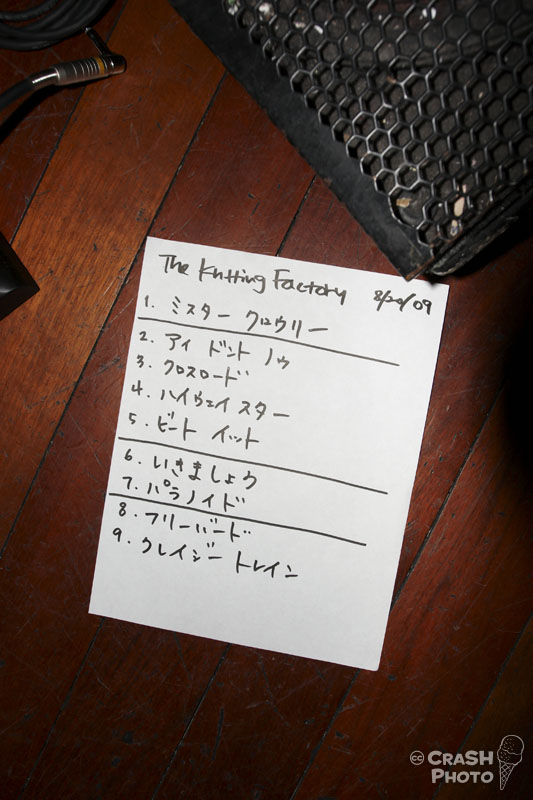 The Knitting Factory 8/20/09
1. ミスター クロウリー
2. アイ ドント ノウ
3. クロスロード
4. ハイウェイ スター
5. ビート イット
6. いきましょう
7. パラノイド
8. フリーバード
9. クレイジー トレイン
cc CRASH
PHOTO